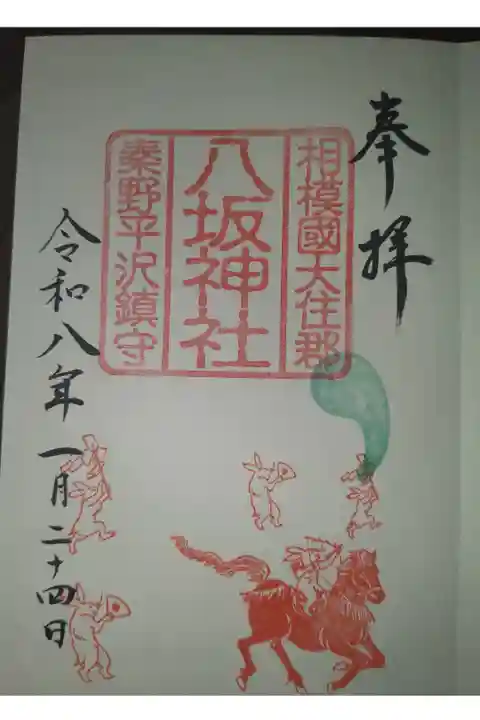 奉拝
相模國大住郡
八坂神社
秦野平沢鎮守
令和八年一月二十四日